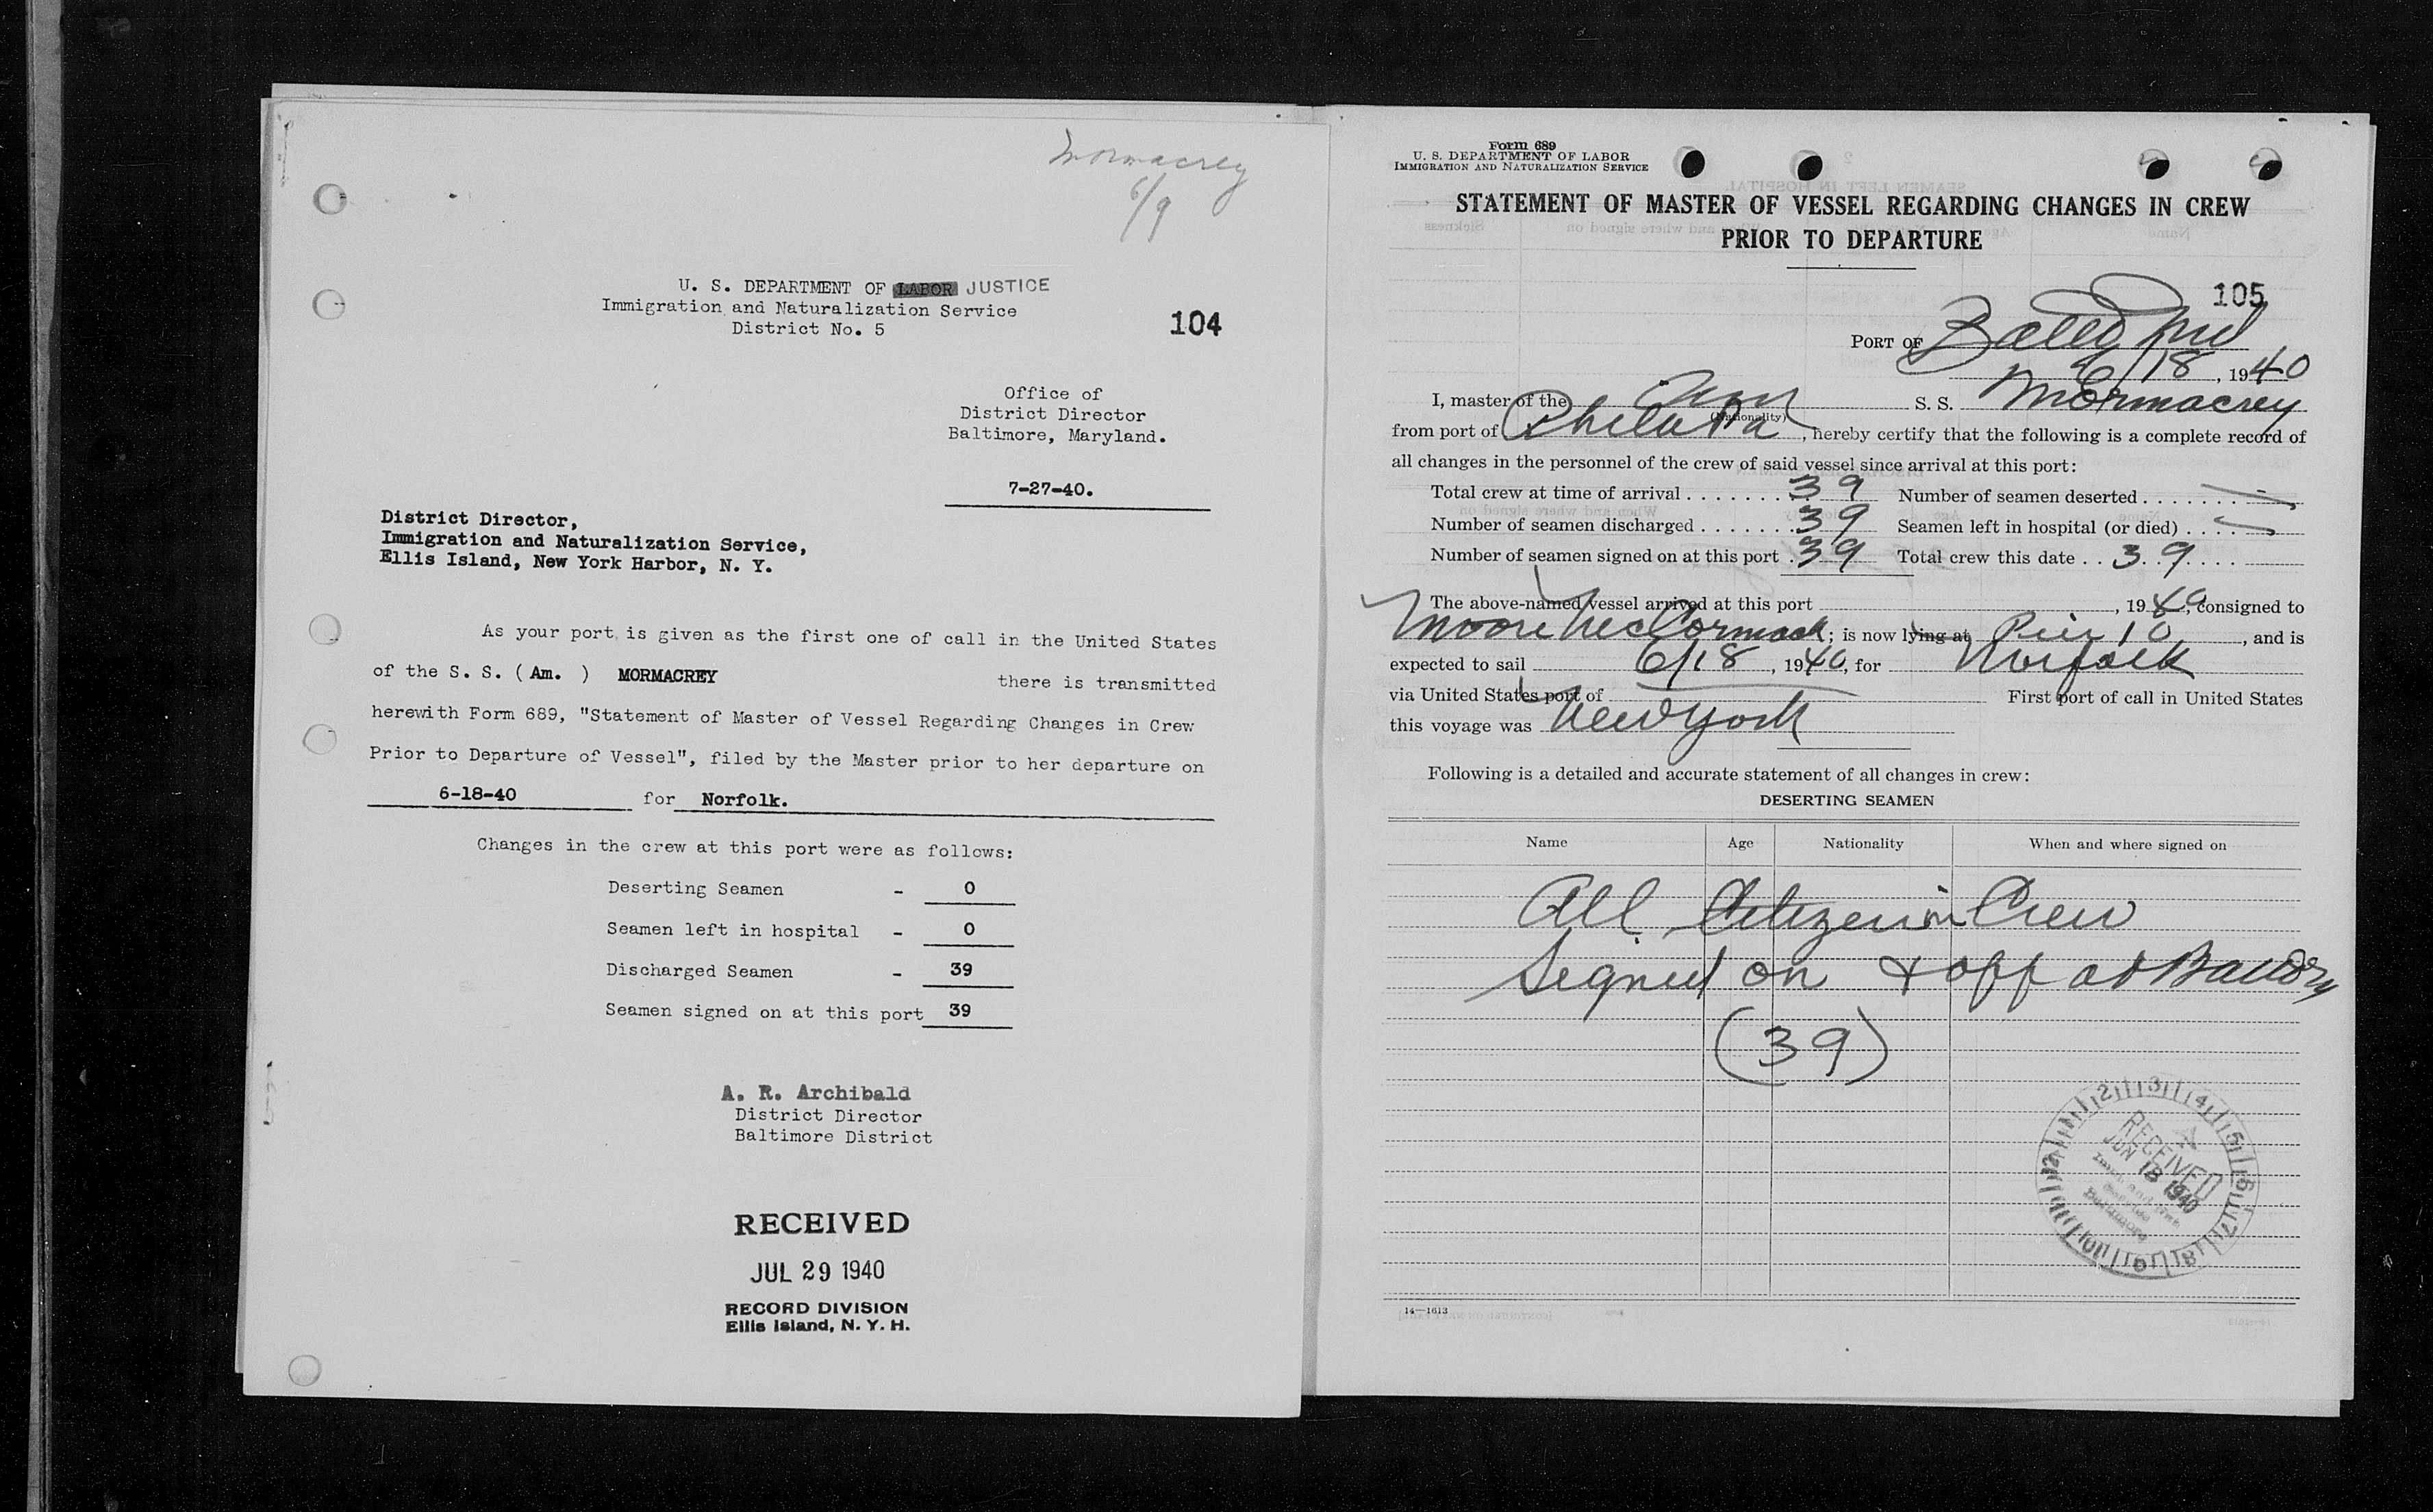 Mormacrey
6/9
U. S. DEPARTMENT OF LABOR JUSTICE
Immigration and Naturalization Service
District No. 5
104
Office of
District Director
Baltimore, Maryland.
7-27-40.
District Director,
Immigration and Naturalization Service,
Ellis Island, New York Harbor, N. Y.
As your port is given as the first one of call in the United States
of the S. S. ( Am. ) MORMACREY there is transmitted
herewith Form 689, "Statement of Master of Vessel Regarding Changes in Crew
Prior to Departure of Vessel", filed by the Master prior to her departure on
6-18-40 for Norfolk.
Changes in the crew at this port were as follows:
Deserting Seamen - 0
Seamen left in hospital - 0
Discharged Seamen - 39
Seamen signed on at this port 39
A. R. Archibald
District Director
Baltimore District
RECEIVED
JUL 29 1940
RECORD DIVISION
Ellis Island, N. Y. H.
Form 689
U. S. DEPARTMENT OF LABOR
IMMIGRATION AND NATURALIZATION SERVICE
STATEMENT OF MASTER OF VESSEL REGARDING CHANGES IN CREW
PRIOR TO DEPARTURE
105
PORT OF Balto Md
6/18, 1940
I, master of the Am S. S. Mormacrey
(Nationality)
from port of Phila Pa, hereby certify that the following is a complete record of
all changes in the personnel of the crew of said vessel since arrival at this port:
Total crew at time of arrival . . . . . . . 39 Number of seamen deserted . . . . . . . —
Number of seamen discharged . . . . . . . 39 Seamen left in hospital (or died) . . . . —
Number of seamen signed on at this port . 39 Total crew this date . . 39 . . . .
The above-named vessel arrived at this port , 1940, consigned to
Moore McCormack; is now lying at Pier 10, and is
expected to sail 6/18, 1940, for Norfolk
via United States port of First port of call in United States
this voyage was New York
Following is a detailed and accurate statement of all changes in crew:
DESERTING SEAMEN
Name Age Nationality When and where signed on
All Citizen Crew
Signed on + off at
(39)
RECEIVED
JUN 18 1940
Baltimore
14—1613